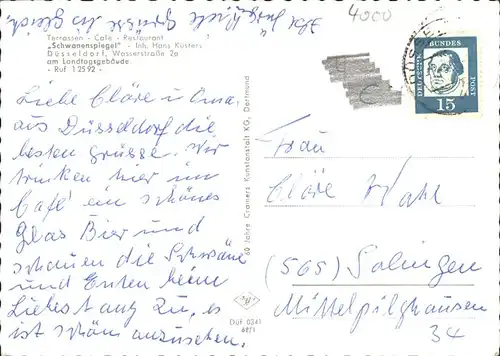 4000
Terrassen - Café - Restaurant
„Schwanenspiegel" - Inh. Hans Küsters
Düsseldorf, Wasserstraße 2a
am Landtagsgebäude
- Ruf 1 25 92 -
Liebe Cläre u. Oma,
aus Düsseldorf die
besten Grüsse. Wir
trinken hier im
Café ein schönes
Glas Bier und
schauen die Schwäne
und Enten beim
Liebestanz zu, es
ist schön anzusehen.
Herzliche Grüsse
60 Jahre Cramers Kunstanstalt KG, Dortmund
DÜF 0341
DEUTSCHE BUNDESPOST
15
Frau
Cläre
(565) Solingen
Mittelpilghausen
34